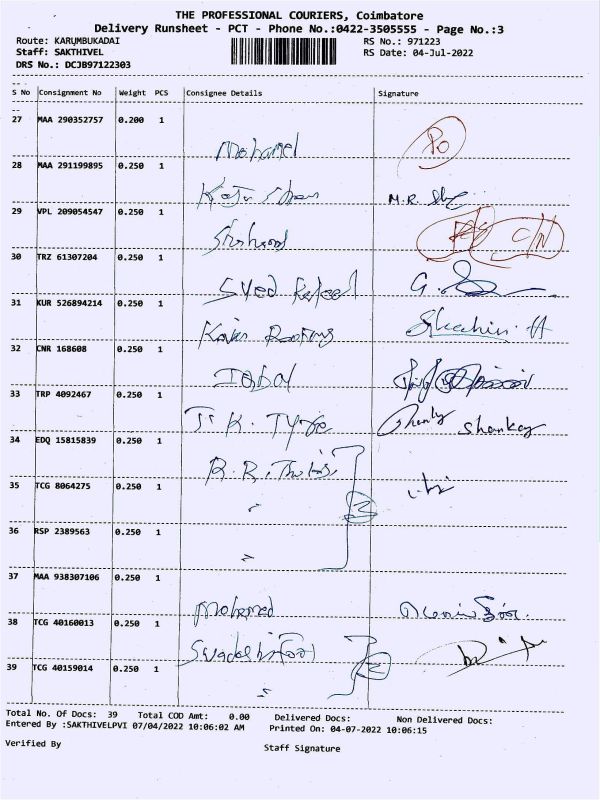 THE PROFESSIONAL COURIERS, Coimbatore
Delivery Runsheet - PCT - Phone No.:0422-3505555 - Page No.:3
Route: KARUMBUKADAI
RS No.: 971223
Staff: SAKTHIVEL
RS Date: 04-Jul-2022
DRS No.: DCJB97122303
S No Consignment No Weight PCS Consignee Details Signature
27 MAA 290352757 0.200 1
Mohamed
28 MAA 291199895 0.250 1
M.R.
29 VPL 209054547 0.250 1
C/N
30 TRZ 61307204 0.250 1
Syed
31 KUR 526894214 0.250 1
32 CNR 168608 0.250 1
Iqbal
33 TRP 4092467 0.250 1
T.K. Shankar
34 EDQ 15815839 0.250 1
R.R.
35 TCG 8064275 0.250 1
36 RSP 2389563 0.250 1
37 MAA 938307106 0.250 1
Mohamed
38 TCG 40160013 0.250 1
39 TCG 40159014 0.250 1
Total No. Of Docs: 39 Total COD Amt: 0.00 Delivered Docs: Non Delivered Docs:
Entered By :SAKTHIVELPVI 07/04/2022 10:06:02 AM Printed On: 04-07-2022 10:06:15
Verified By Staff Signature